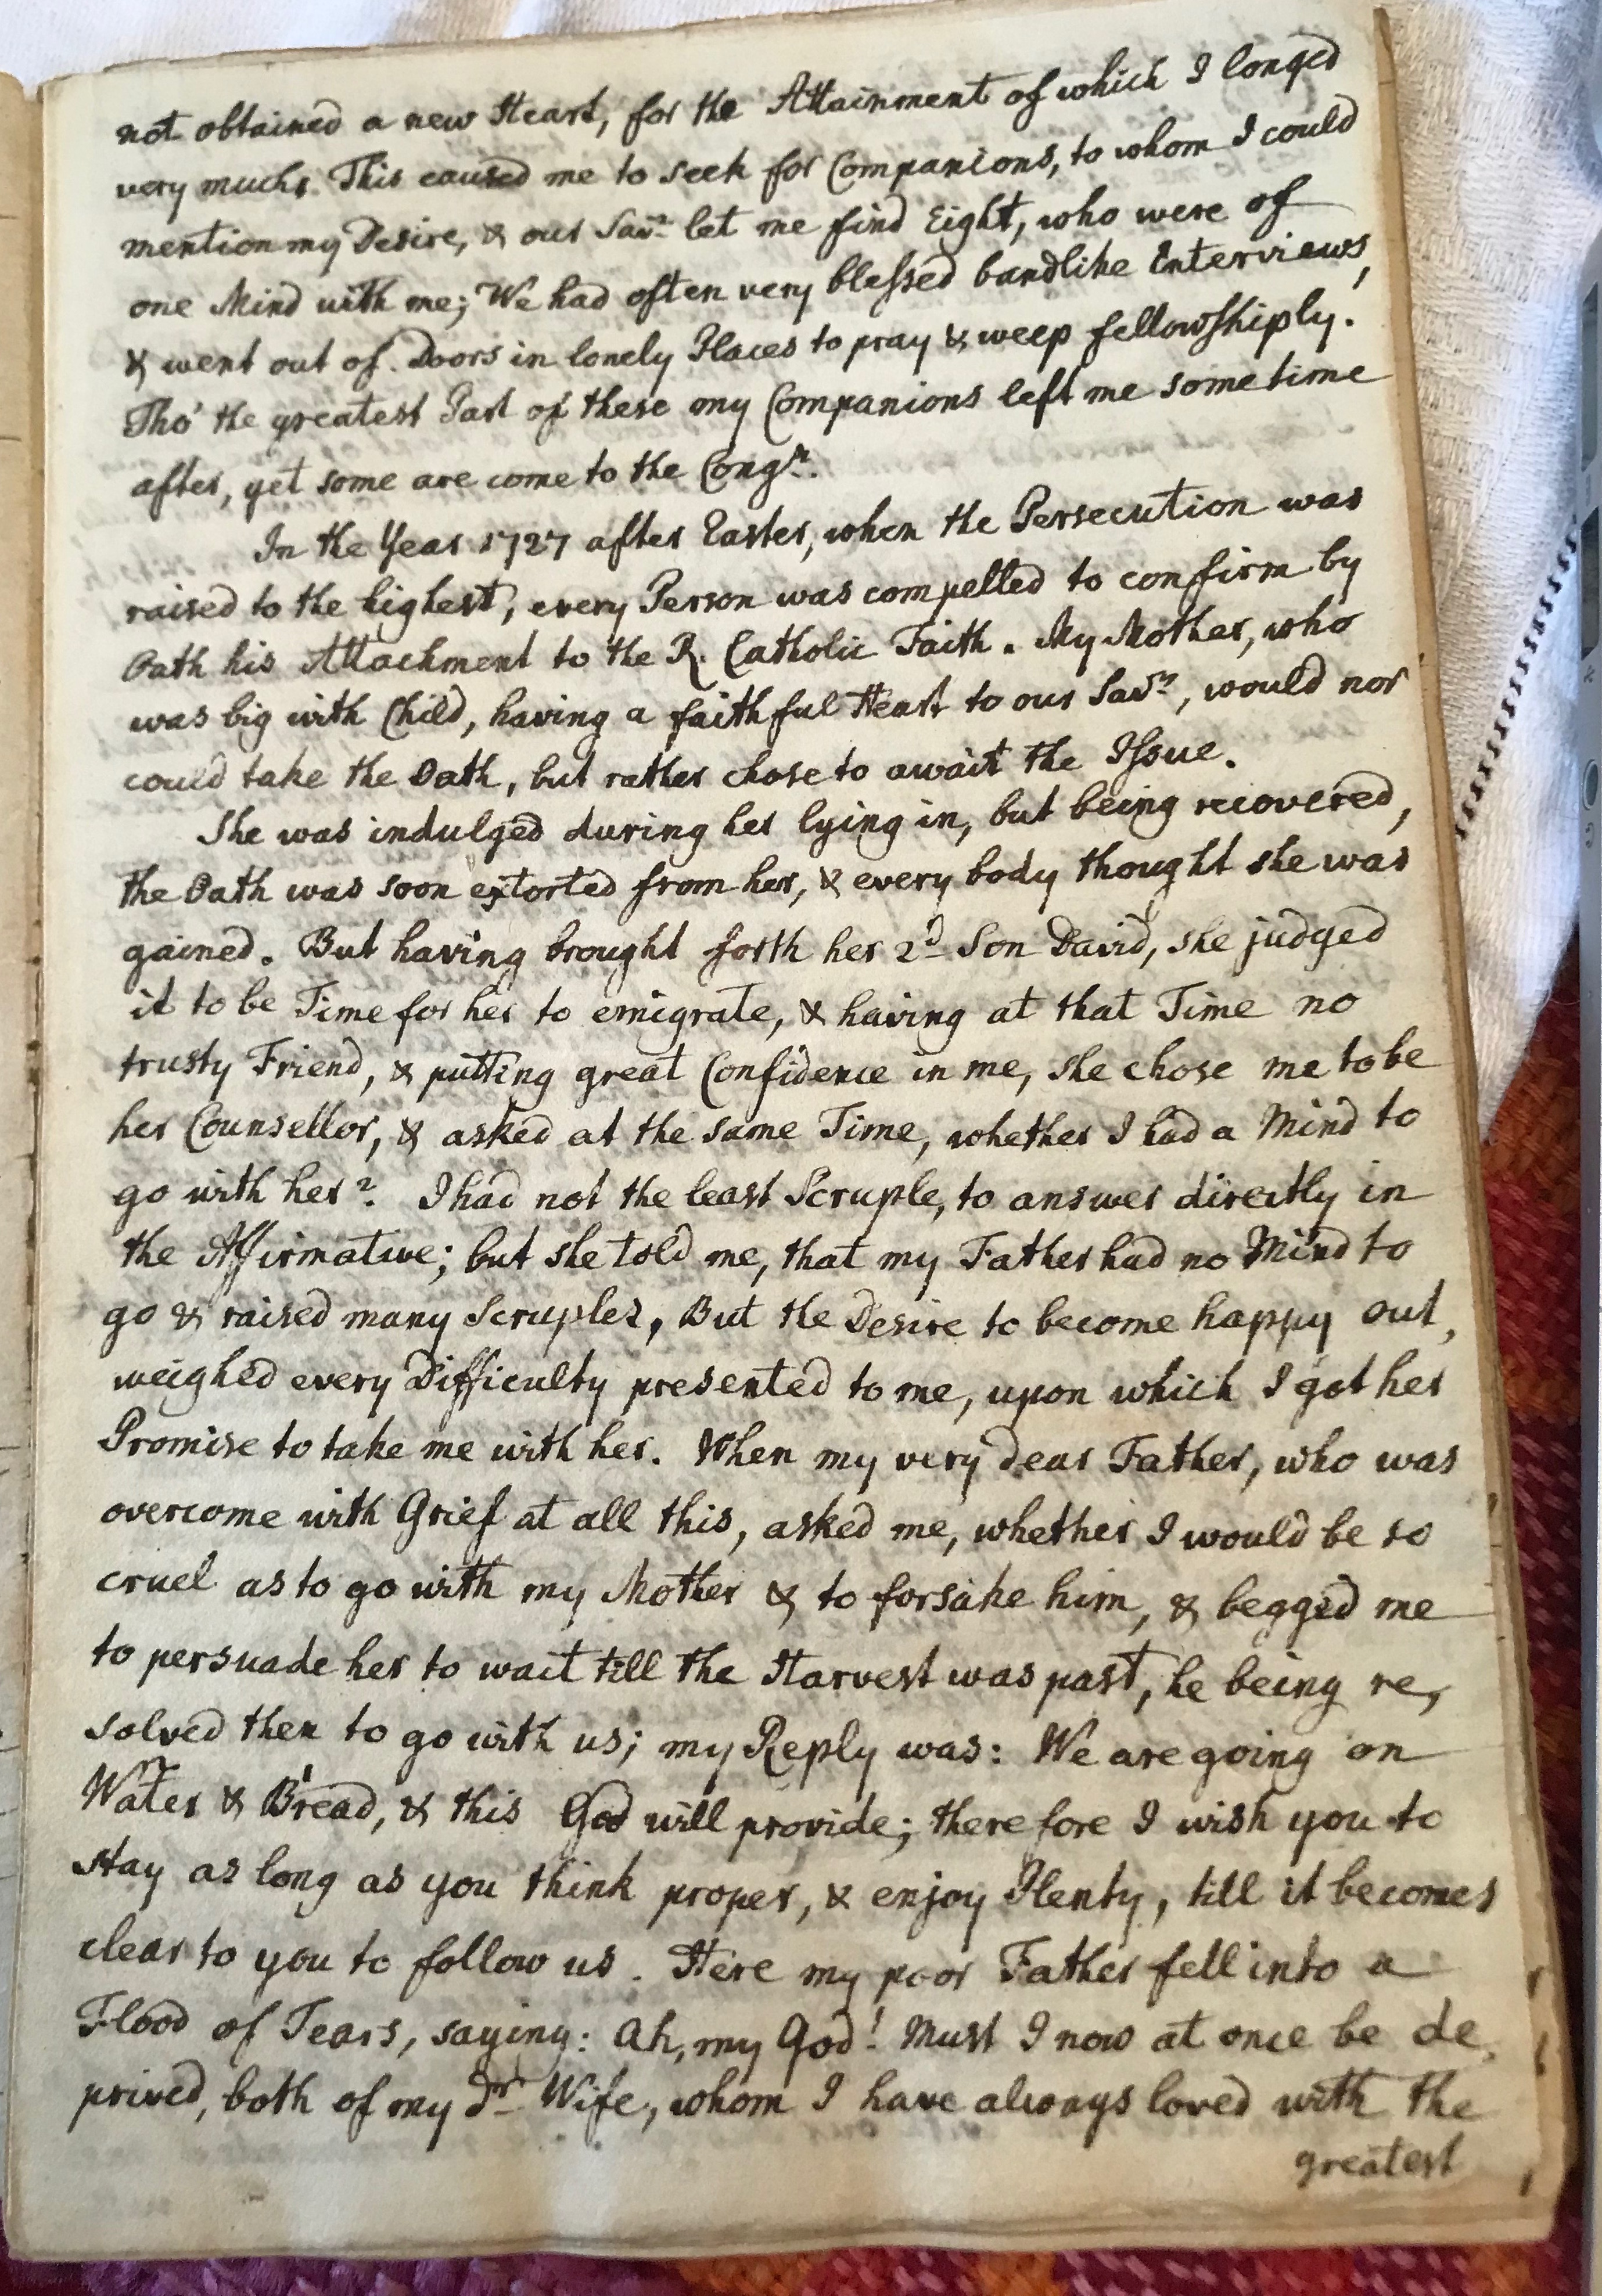 not obtained a new Heart, for the Attainment of which I longed
very much. This caused me to seek for Companions, to whom I could
mention my Desire, & our Savr. let me find Eight, who were of
one Mind with me; We had often very blessed bandlike Enterviews,
& went out of Doors in lonely Places to pray & weep fellowshiply.
Tho' the greatest Part of these my Companions left me sometime
after, yet some are come to the Congn.
In the Year 1727 after Easter, when the Persecution was
raised to the highest, every Person was compelled to confirm by
Oath his Attachment to the R. Catholic Faith. My Mother, who
was big with Child, having a faithful Heart to our Savr., would nor
could take the Oath, but rather chose to await the Issue.
She was indulged during her lying in, but being recovered,
the Oath was soon extorted from her, & every body thought she was
gained. But having brought forth her 2d Son David, she judged
it to be Time for her to emigrate, & having at that Time no
trusty Friend, & putting great Confidence in me, she chose me to be
her Counsellor, & asked at the same Time, whether I had a Mind to
go with her? I had not the least Scruple, to answer directly in
the Affirmative; but she told me, that my Father had no Mind to
go & raised many Scruples, But the Desire to become happy out,
weighed every Difficulty presented to me, upon which I got her
Promise to take me with her. When my very dear Father, who was
overcome with Grief at all this, asked me, whether I would be so
cruel as to go with my Mother & to forsake him, & begged me
to persuade her to wait till the Harvest was past, he being re,
solved then to go with us; my Reply was: We are going on
Water & Bread, & this God will provide; therefore I wish you to
stay as long as you think proper, & enjoy Plenty, till it becomes
clear to you to follow us. Here my poor Father fell into a
Flood of Tears, saying: Ah, my God! Must I now at once be de,
prived, both of my dr. Wife, whom I have always loved with the
greatest